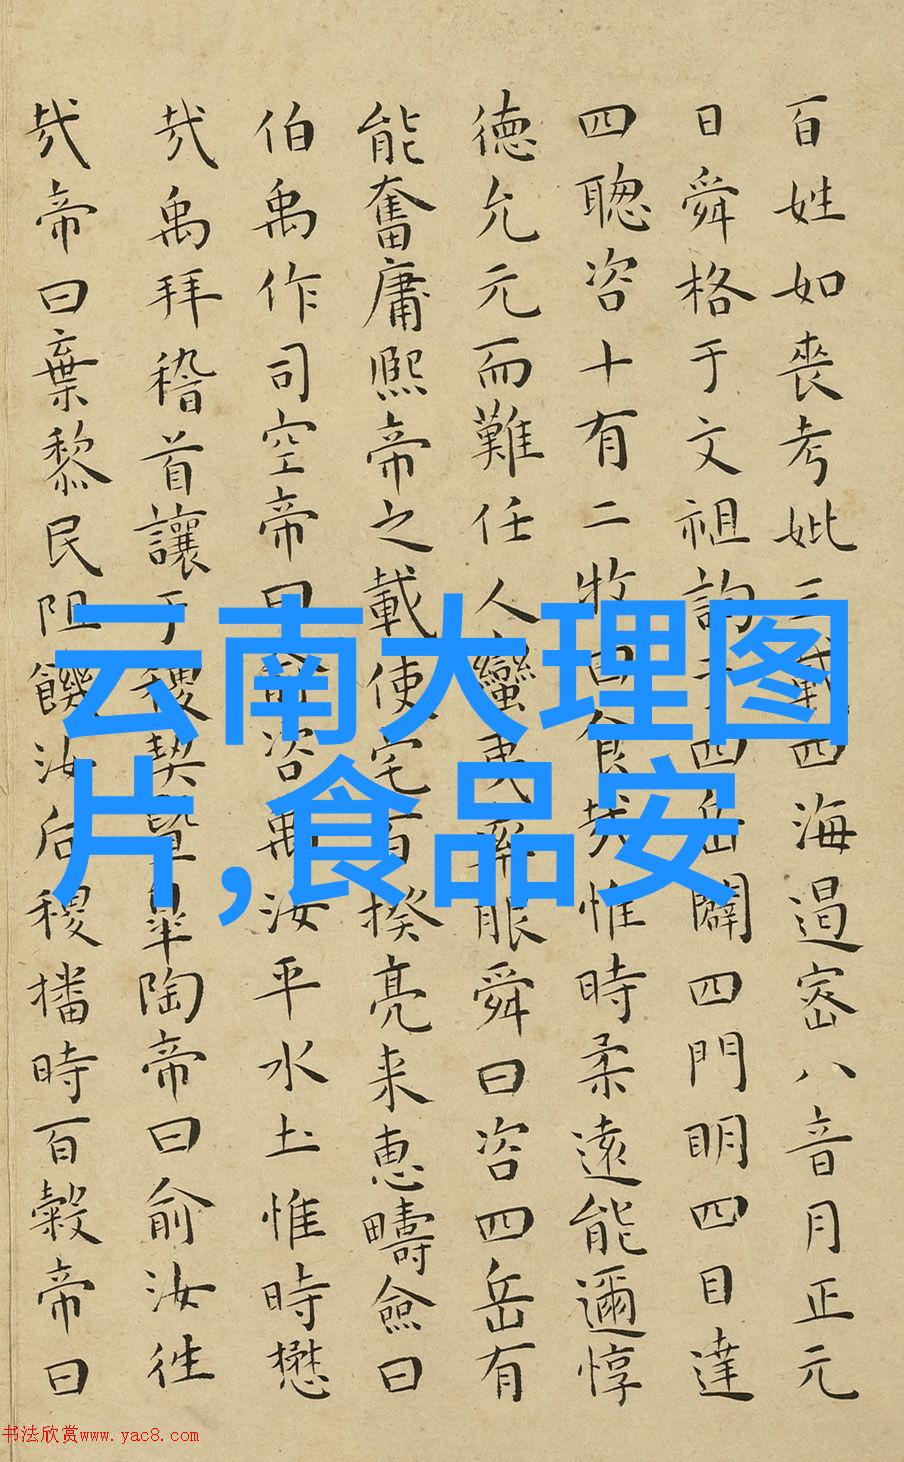 百姓如喪考妣三載四海遏密八音月正元
日舜格于文祖詢于四岳闢四門明四目達
四聰咨十有二牧曰食哉惟時柔遠能邇惇
德允元而難任人蠻夷率服舜曰咨四岳有
能奮庸熙帝之載使宅百揆亮来惠疇僉曰
伯禹作司空帝曰俞咨禹汝平水土惟時懋
哉禹拜稽首讓于稷契曁皐陶帝曰俞汝徃
哉帝曰棄黎民阻饑汝后稷播時百穀帝曰
云南大理图
片,食品安
书法欣赏www.yac8.com